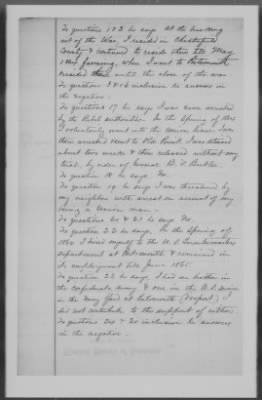 To questions 1 & 2 he says At the breaking
out of the War, I resided in Chesterfield
County & continued to reside there till May
1864 following, when I went to Portsmouth
resided there until the close of the war.
To questions 3 to 16 inclusive he answers in
the negative.
To questions 17 he says I was never arrested
by the Rebel authorities. In the Spring of 1864
I voluntarily went into the Union lines. I was
then arrested & sent to Old Point. I was detained
about two weeks & then released without any
trial, by order of General B. F. Butler.
To question 18 he says No.
To question 19 he says I was threatened by
my neighbors with arrest on account of my
being a Union man.
To questions 20 & 21 he says No.
To question 22 he says, In the Spring of
1864 I hired myself to the U. S. Quartermasters
department at Portsmouth & remained in
its employment till June 1865.
To question 23 he says, I had one brother in
the confederate army & one in the U. S. service
in the Navy Yard at Portsmouth (Gosport) I
did not contribute to the support of either.
To questions 24 to 30 inclusive he answers
in the negative.